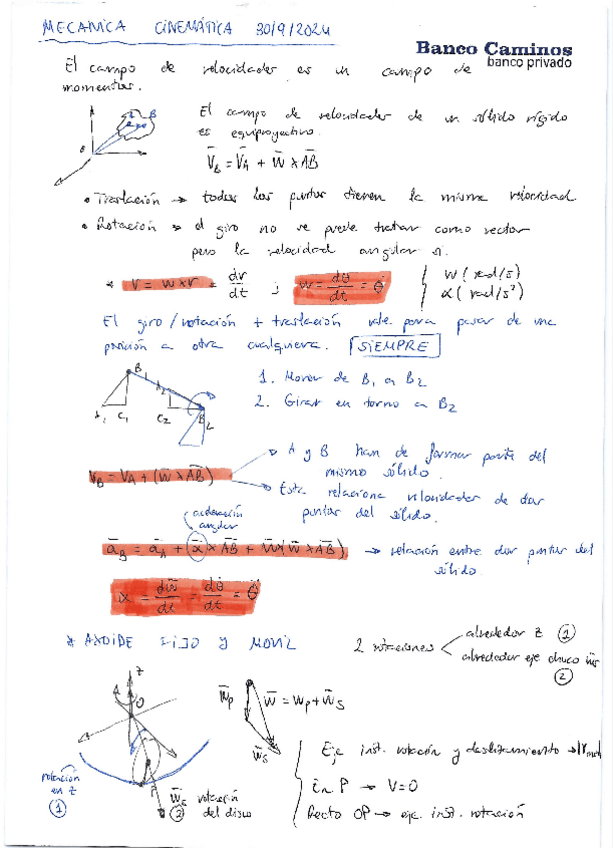 MECANICA CINEMÁTICA 30/9/2024
Banco Caminos
banco privado
El campo de velocidades es un campo de
momentos.
El campo de velocidades de un sólido rígido
es equiproyectivo.
V̄_B = V̄_A + W̄ × ĀB̄
• Traslación → todos los puntos tienen la misma velocidad.
• Rotación → el giro no se puede tratar como vector
pero la velocidad angular sí.
* V = W × r = dr/dt ; W = dθ/dt = θ̇ { W (rad/s)
α (rad/s²)
El giro/rotación + traslación vale para pasar de una
posición a otra cualquiera. SIEMPRE
1. Mover de B₁ a B₂
2. Girar en torno a B₂
A₁ C₁ B₁ A₂ C₂ B₂
V_B = V_A + (W̄ × ĀB̄)
→ A y B han de formar parte del
mismo sólido.
→ Esta relaciona velocidades de dos
puntos del sólido.
aceleración
angular
ā_B = ā_A + α × ĀB̄ + W̄ × (W̄ × ĀB̄) → relación entre dos puntos del
sólido.
α = dW̄/dt = dθ̇/dt = θ̈
* AXOIDE FIJO Y MOVIL
2 rotaciones
alrededor z ①
alrededor eje disco W̄s
②
z
O
W̄p
W̄ = Wp + W̄s
W̄s
rotación
en z
①
W̄s rotación
② del disco
Eje inst. rotación y deslizamiento →
En P → V=0
Recto OP → eje. inst. rotación